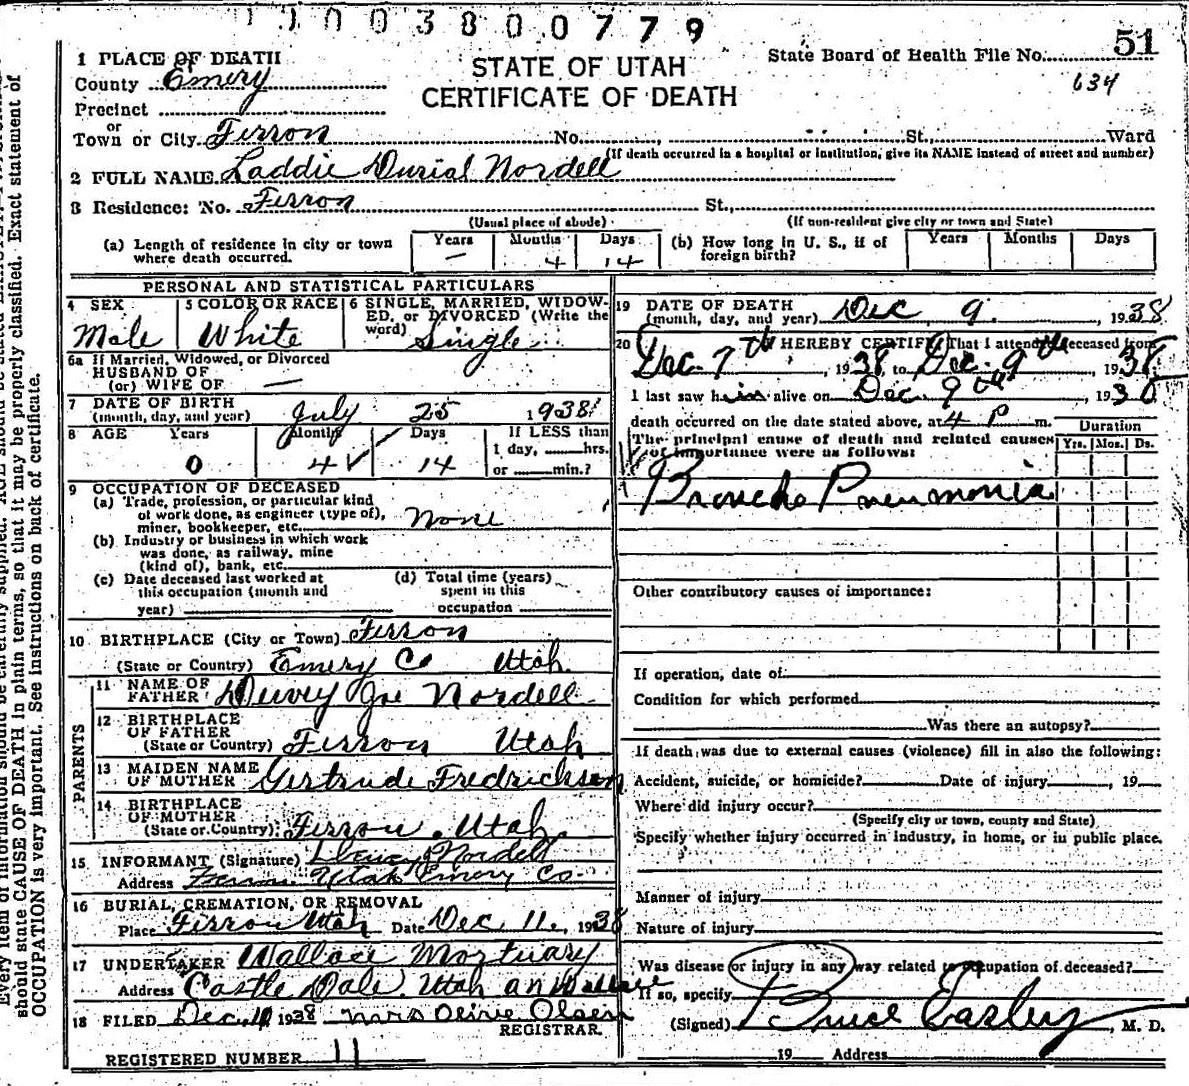 1003800779
51
State Board of Health File No.
634
1 PLACE OF DEATH
STATE OF UTAH
County Emery
CERTIFICATE OF DEATH
Precinct
or
Town or City Ferron No. , St., Ward
(If death occurred in a hospital or institution, give its NAME instead of street and number)
2 FULL NAME Laddie Durial Nordell
3 Residence: No. Ferron St.,
(Usual place of abode) (If non-resident give city or town and State)
(a) Length of residence in city or town Years Months Days (b) How long in U. S., if of Years Months Days
where death occurred. — 4 14 foreign birth?
PERSONAL AND STATISTICAL PARTICULARS
4 SEX 5 COLOR OR RACE 6 SINGLE, MARRIED, WIDOW-
ED, or DIVORCED (Write the
word)
Male White Single
6a If Married, Widowed, or Divorced
HUSBAND OF
(or) WIFE OF —
7 DATE OF BIRTH
(month, day, and year) July 25 1938
8 AGE Years Months Days If LESS than
1 day, hrs.
0 4 14 or min.?
9 OCCUPATION OF DECEASED
(a) Trade, profession, or particular kind
of work done, as engineer (type of),
miner, bookkeeper, etc. None
(b) Industry or business in which work
was done, as railway, mine
(kind of), bank, etc.
(c) Date deceased last worked at (d) Total time (years)
this occupation (month and spent in this
year) occupation
10 BIRTHPLACE (City or Town) Ferron
(State or Country) Emery Co Utah
PARENTS
11 NAME OF
FATHER Dewey Joe Nordell
12 BIRTHPLACE
OF FATHER
(State or Country) Ferron Utah
13 MAIDEN NAME
OF MOTHER Gertrude Fredrickson
14 BIRTHPLACE
OF MOTHER
(State or Country) Ferron, Utah
15 INFORMANT (Signature) Nordell
Address Ferron Utah Emery Co.
16 BURIAL, CREMATION, OR REMOVAL
Place Ferron Utah Date Dec 11, 1938
17 UNDERTAKER Wallace Mortuary
Address Castle Dale, Utah an Wallace
18 FILED Dec, 1938 Mrs Olive Olsen
REGISTRAR.
REGISTERED NUMBER 11
19 DATE OF DEATH
(month, day, and year) Dec 9. , 1938
20 I HEREBY CERTIFY That I attended deceased from
Dec. 7th , 1938 to Dec. 9th , 1938
I last saw him alive on Dec 9th , 1938
death occurred on the date stated above, at 4 P m.
Duration
The principal cause of death and related causes Yrs. Mos. Ds.
of importance were as follows:
Broncho Pneumonia
Other contributory causes of importance:
If operation, date of
Condition for which performed
Was there an autopsy?
If death was due to external causes (violence) fill in also the following:
Accident, suicide, or homicide? Date of injury , 19
Where did injury occur?
(Specify city or town, county and State)
Specify whether injury occurred in industry, in home, or in public place.
Manner of injury
Nature of injury
Was disease or injury in any way related to occupation of deceased?
If so, specify
(Signed) Bruce Easley , M. D.
19 Address
should state CAUSE OF DEATH in plain terms, so that it may be properly classified. Exact statement of
OCCUPATION is very important. See instructions on back of certificate.